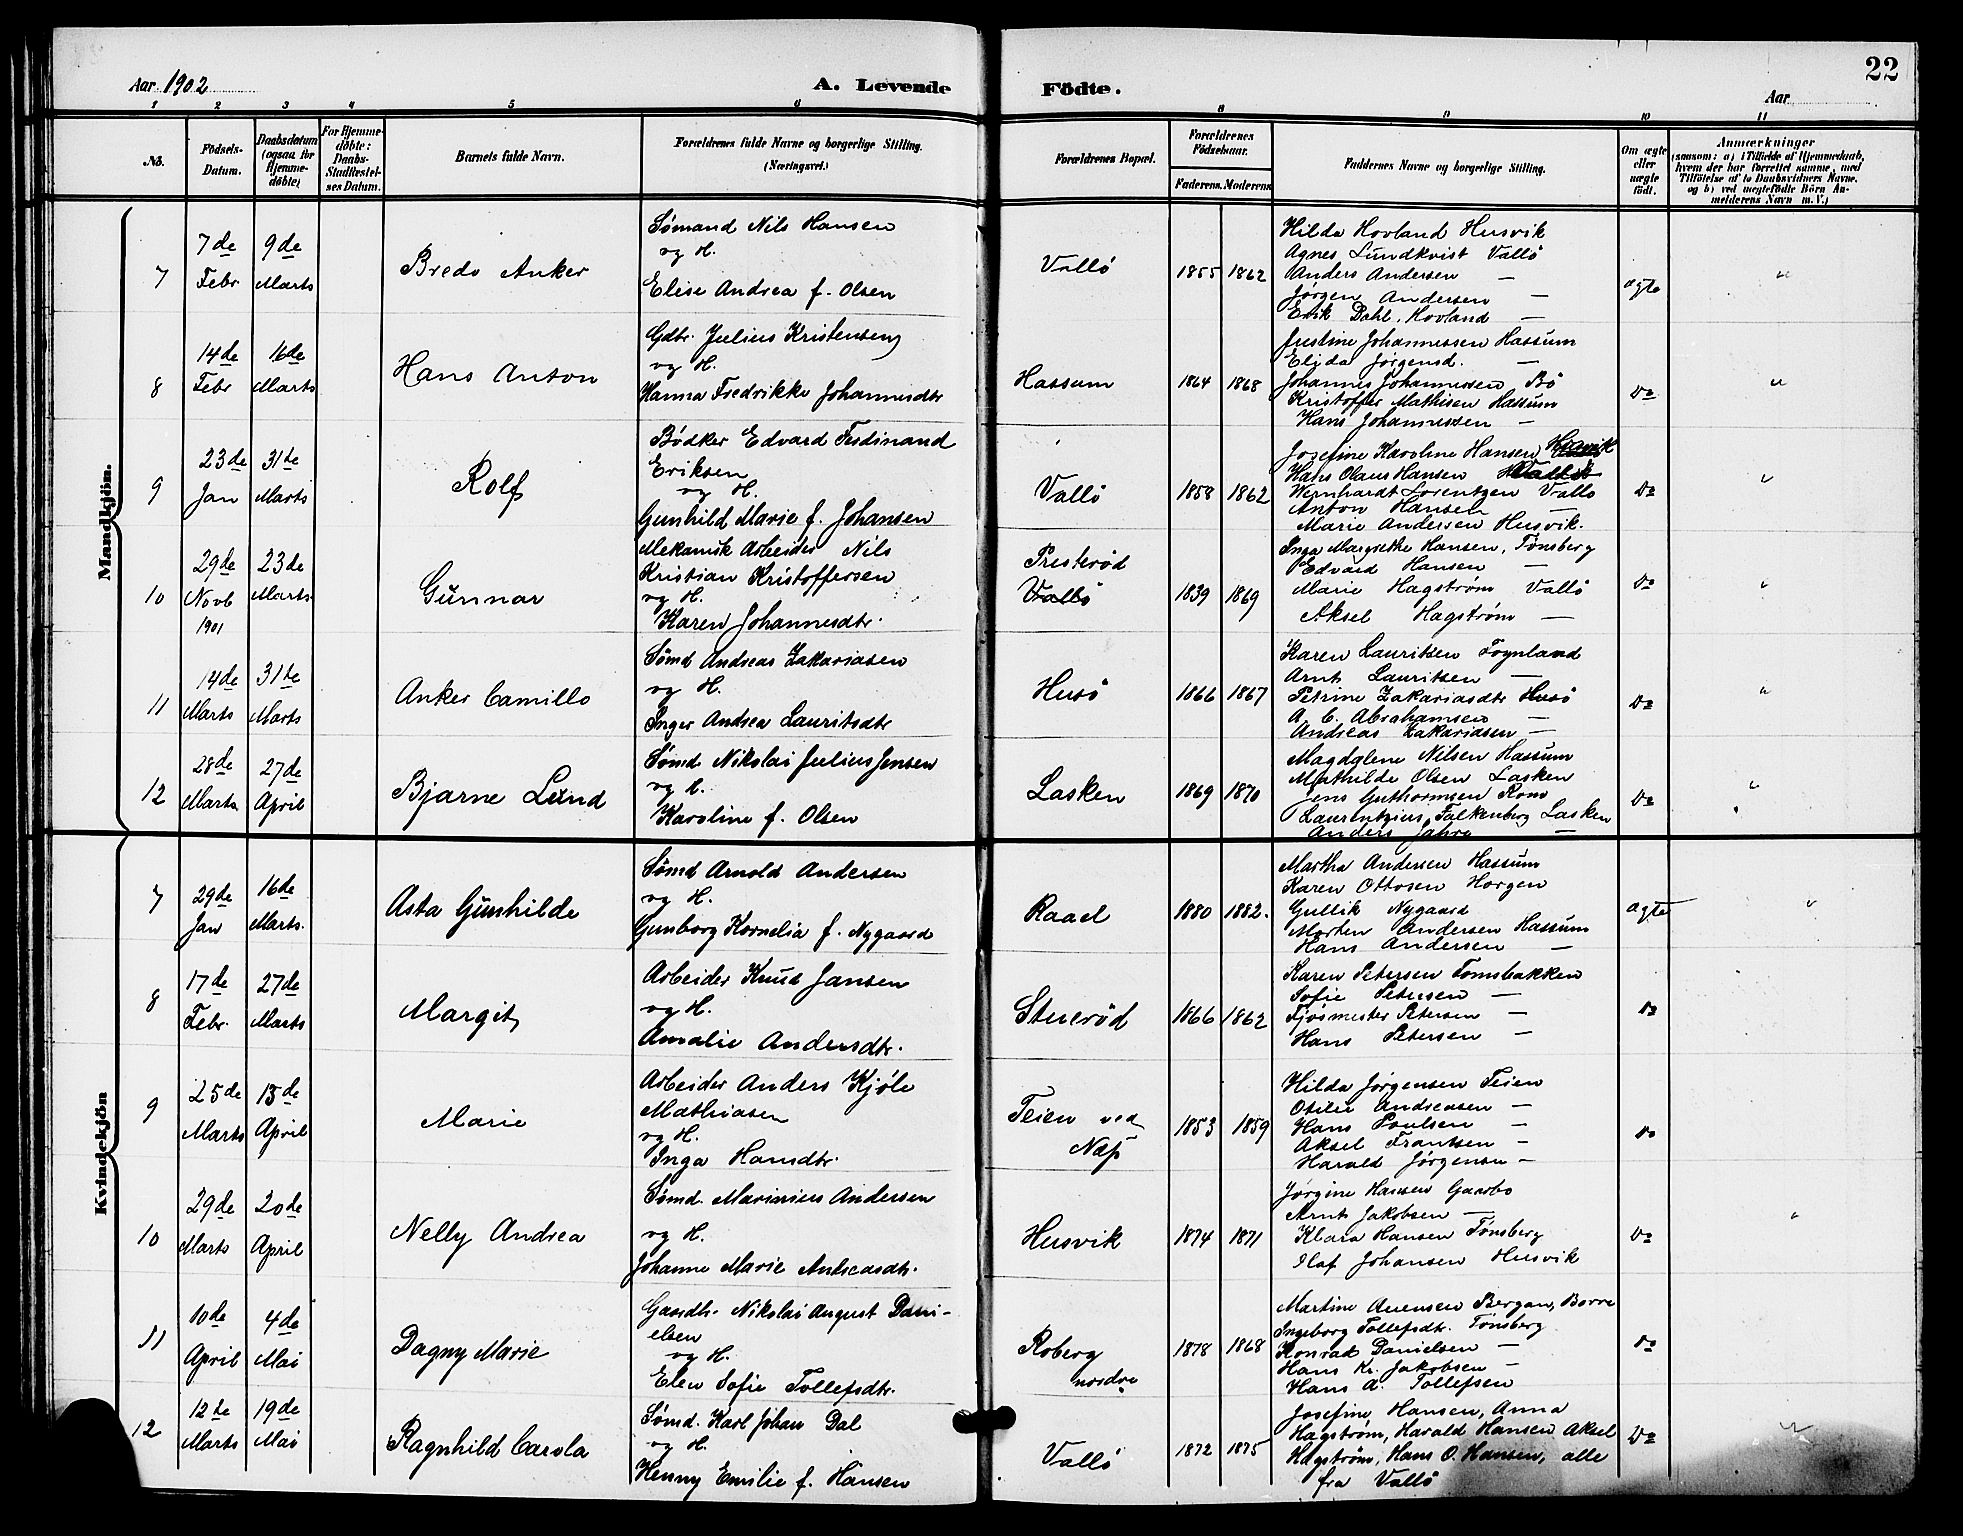 Aar 1902
A. Levende
Födte.
22
Aar
1 2 3 4 5 6 8 9 10 11
No.
Födsels-Datum.
Daabsdatum (ogsaa for Hjemmedöbte)
For Hjemmedöbte: Daabs-Stadfæstelses Datum.
Barnets fulde Navn.
Forældrenes fulde Navne og borgerlige Stilling.
(Næringsvei.)
Forældrenes Bopæl.
Forældrenes Födselsaar.
Faderens. Moderens
Faddernes Navne og borgerlige Stilling.
Om ægte eller uægte födt.
Anmærkninger
(saasom: a) i Tilfælde af Hjemmedaab, hvem der har forrettet samme, med Tilföielse af to Daabsvidners Navne, og b) ved uægtefödte Börn Anmelderens Navn m. V.)
Mandkjön.
7
7de Febr
9de Marts
Bredo Anker
Sømand Nils Hansen
og H.
Elise Andrea f. Olsen
Vallö
1855 1862
Hilda Hovland Husvik
Agnes Lundkvist Vallö
Anders Andersen —
Jørgen Andersen —
Erik Dahl, Hovland —
ægte
"
8
14de Febr
16de Marts
Hans Anton
Gdbr. Julius Kristensen
og H.
Hanna Fredrikke Johannesdtr
Hassum
1864 1868
Justine Johannessen Hassum
Elida Jørgensd. —
Johannes Johannessen Bö
Kristoffer Mathisen Hassum
Hans Johannessen —
Do
"
9
23de Jan
31te Marts
Rolf
Bødker Edvard Ferdinand
Eriksen
og H.
Gunhild Marie f. Johansen
Vallö
1858 1862
Josefine Karoline Hansen Husvik
Hans Olaus Hansen
Wernhardt Lorentzen Vallö
Anton Hansen —
Marie Andersen Husvik.
Do
"
10
29de Novb 1901
23de Marts
Gunnar
Mekanisk Arbeider Nils
Kristian Kristoffersen
og H.
Karen Johannesdtr.
Presterød
Vallö
1839 1869
Inga Margrethe Hansen, Tønsberg
Edvard Hansen —
Marie Hagstrøm Vallö
Aksel Hagstrøm —
Do
"
11
14de Marts
31te Marts
Anker Camillo
Sømd Andreas Zakariasen
og H.
Inger Andrea Lauritsdtr
Husö
1866 1867
Karen Lauritsen Føynland
Arnt Lauritsen —
Petrine Zakariasdtr Husö
A. C. Abrahamsen —
Andreas Zakariasen —
Do
"
12
28de Marts
27de April
Bjarne Lund
Sømd Nikolai Julius Jensen
og H.
Karoline f. Olsen
Lasken
1869 1870
Magdglene Nilsen Hassum
Mathilde Olsen Lasken
Jens Guthormsen Rom
Laurentzius Falkenberg Lasken
Anders Jahre —
Do
"
Kvindekjön
7
29de Jan
16de Marts.
Asta Gunhilde
Sømd Arnold Andersen
og H.
Gunborg Kornelia f. Nygaard
Raael
1880 1882.
Martha Andersen Hassum
Karen Ottosen Horgen
Gullik Nygaard
Morten Andersen Hassum
Hans Andersen —
ægte
"
8
17de Febr.
27de Marts
Margit
Arbeider Knud Jansen
og H.
Amalie Andersdtr.
Stuerød
1866 1862
Karen Petersen Tomsbakken
Sofie Petersen —
Fjösmester Petersen —
Hans Petersen —
Do
9
25de Marts
13de April
Marie
Arbeider Anders Kjöle
Mathiasen
og H.
Inga Hansdtr.
Teien ved
Næs
1853 1859
Hilda Jørgensen Teien
Otilie Andreasen —
Hans Poulsen —
Aksel Frantsen —
Harald Jørgensen —
Do
10
29de Marts
20de April
Nelly Andrea
Sømd. Marinius Andersen
og H.
Johanne Marie Andreasdtr.
Husvik
1874 1871
Jørgine Hansen Gaarbo
Arnt Jakobsen —
Klara Hansen Tønsberg
Olaf Johansen Husvik
Do
"
11
10de April
4de Mai
Dagny Marie
Gaardbr. Nikolai August Dani-
elsen
og H.
Elen Sofie Tollefsdtr.
Roberg
nordre
1878 1868
Martine Auensen Bergan, Borre
Ingeborg Tollefsdtr. Tønsberg
Konrad Danielsen —
Hans Kr. Jakobsen —
Hans A. Tollefsen
Do
12
12te Marts
19de Mai
Ragnhild Carola
Sømd. Karl Johan Dal
og H.
Henny Emilie f. Hansen
Vallö
1872 1875
Josefine Hansen, Anna
Hagstrøm, Harald Hansen Aksel
Hagstrøm, Hans O. Hansen, alle
fra Vallö
Do
"